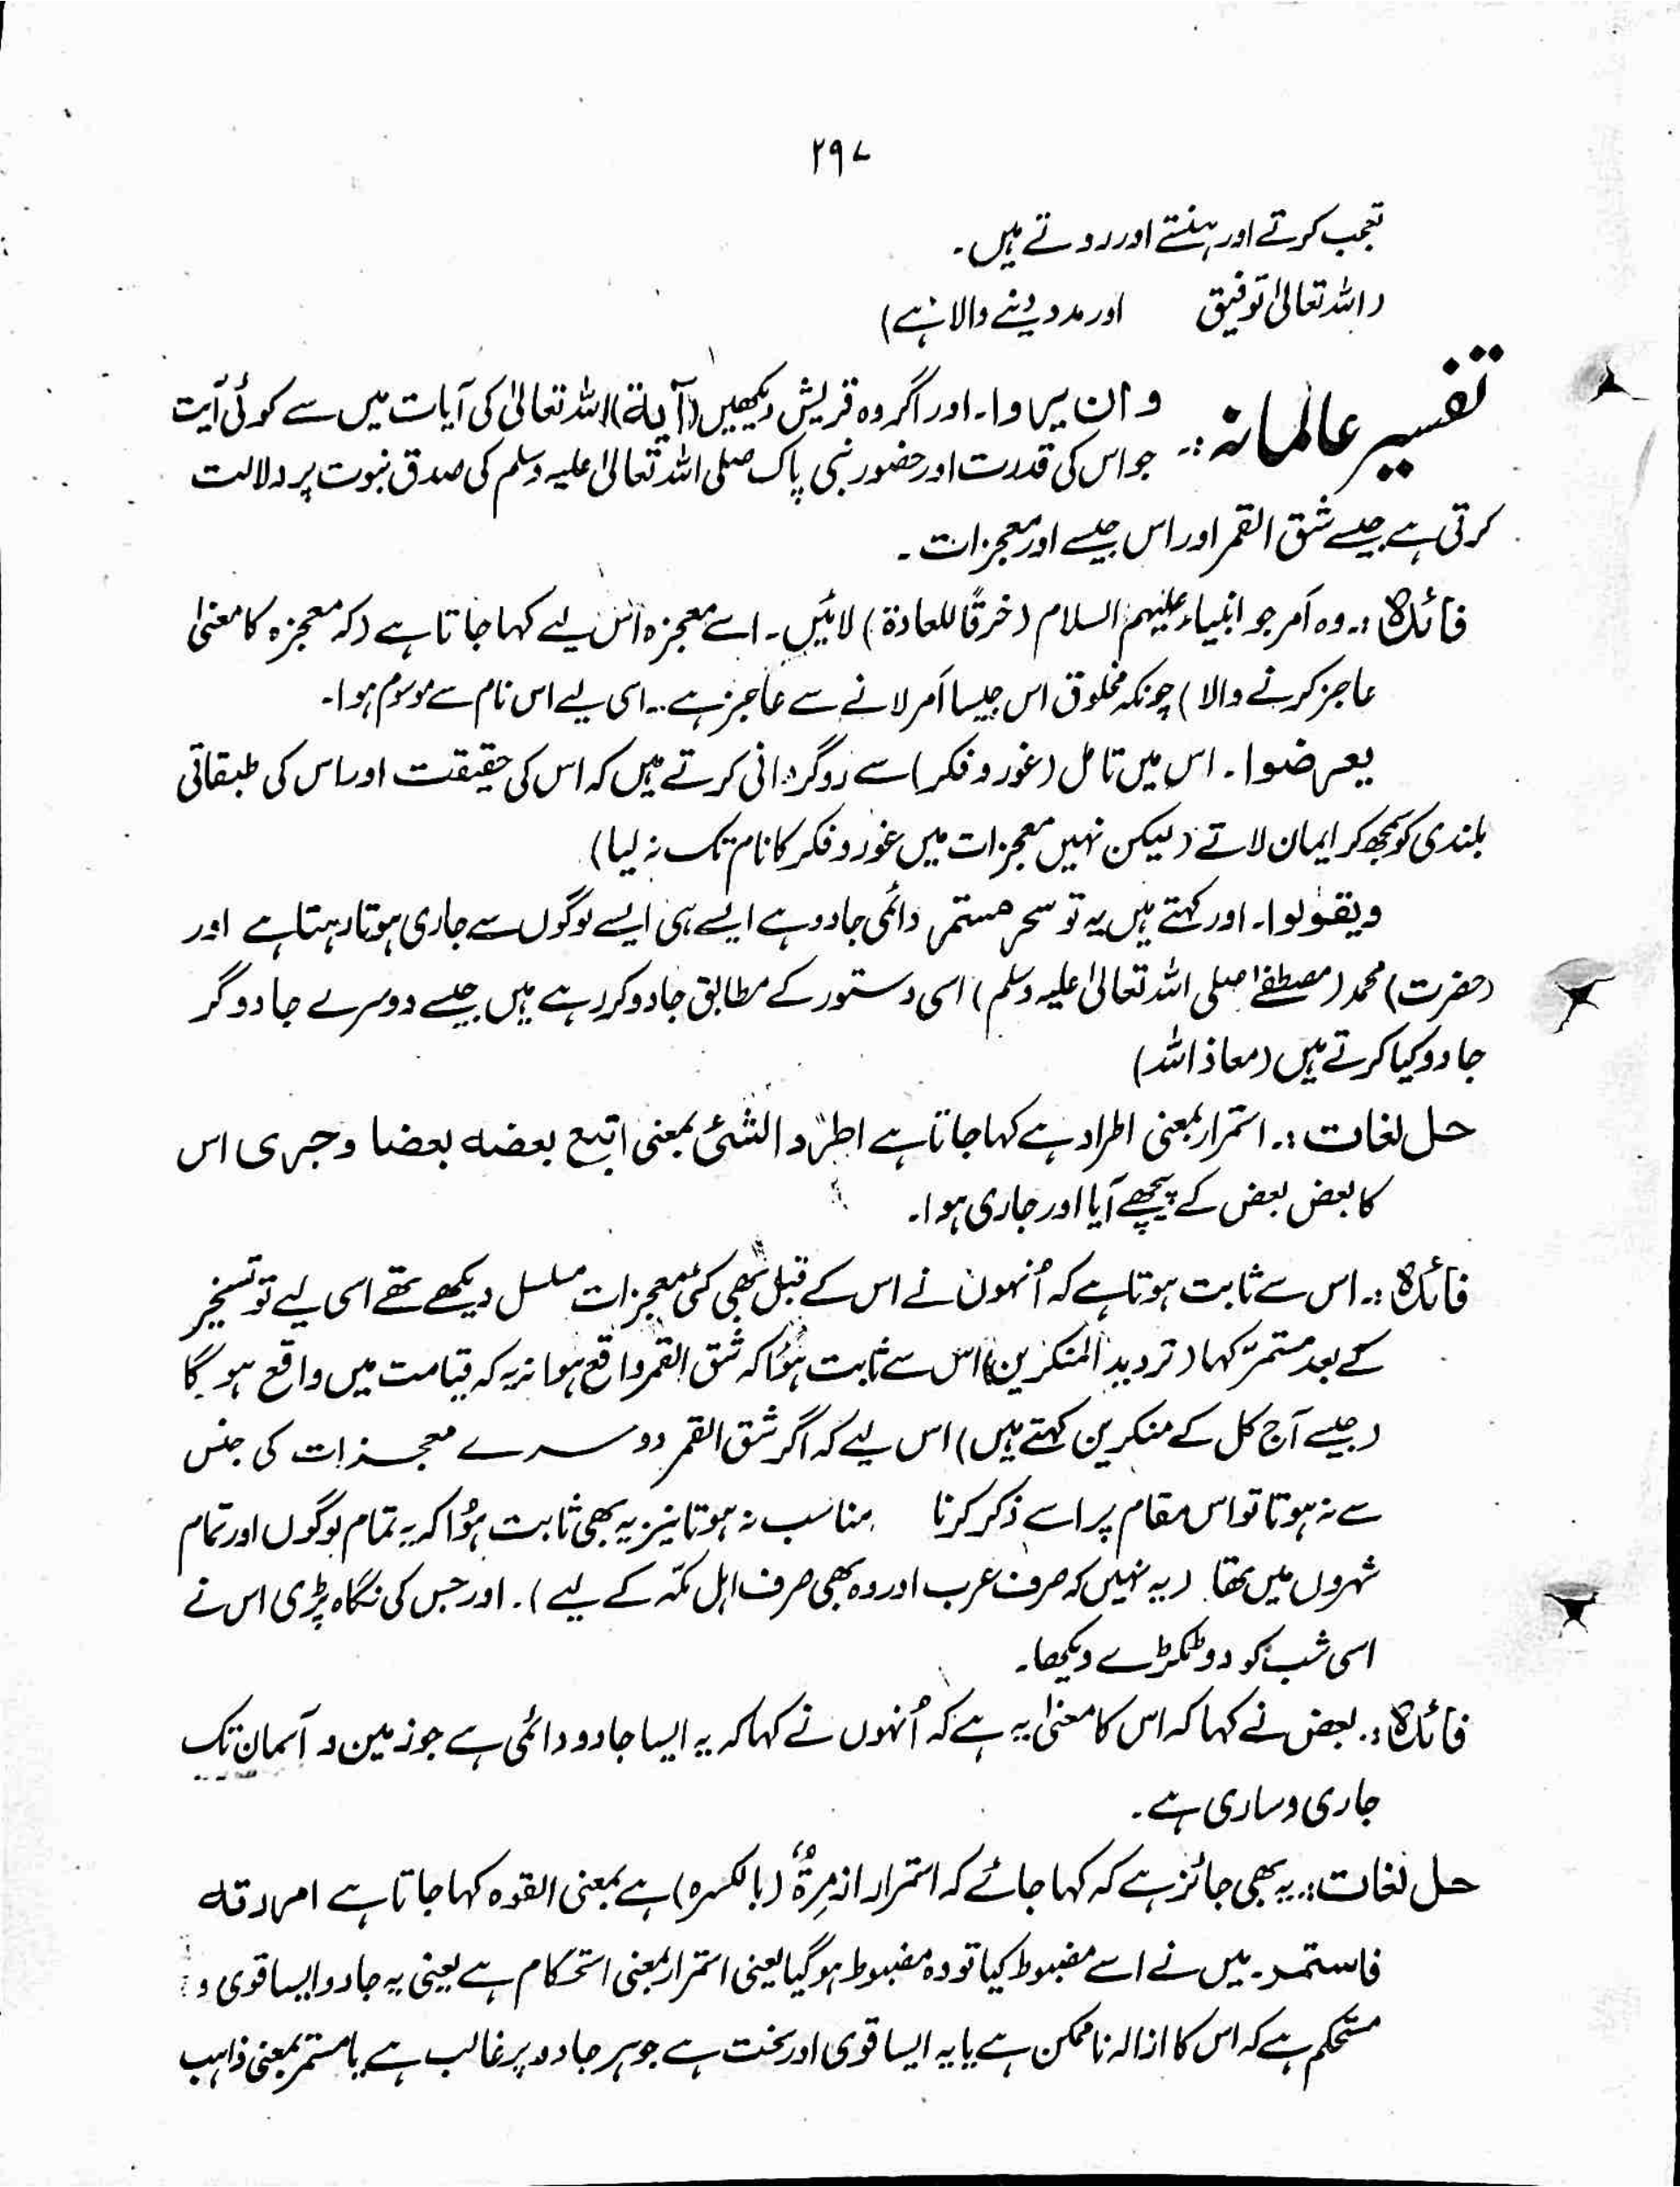 ۲۹۷
تعجب کرتے اور ہنستے اور روتے ہیں۔
(اللہ تعالیٰ توفیق اور مدد دینے والا ہے)
تفسیر عالمانہ :۔ وان یروا۔ اور اگر وہ قریش دیکھیں (آیۃ) اللہ تعالیٰ کی آیات میں سے کوئی آیت
جو اس کی قدرت اور حضور نبی پاک صلی اللہ تعالیٰ علیہ وسلم کی صدق نبوت پر دلالت
کرتی ہے جیسے شق القمر اور اس جیسے اور معجزات۔
فائدہ :۔ وہ اَمر جو انبیاء علیہم السلام (خرقًا للعادۃ) لائیں۔ اسے معجزہ اس لیے کہا جاتا ہے (کہ معجزہ کا معنیٰ
عاجز کرنے والا) چونکہ مخلوق اس جیسا اَمر لانے سے عاجز ہے۔ اسی لیے اس نام سے موسوم ہوا۔
یعرضوا۔ اس میں تامل (غور و فکر) سے روگردانی کرتے ہیں کہ اس کی حقیقت اور اس کی طبقاتی
بلندی کو سمجھ کر ایمان لاتے (لیکن نہیں معجزات میں غور و فکر کا نام تک نہ لیا)
ویقولوا۔ اور کہتے ہیں یہ تو سحر مستمر دائمی جادو ہے ایسے ہی ایسے لوگوں سے جاری ہوتا رہتا ہے اور
(حضرت) محمد (مصطفےٰ صلی اللہ تعالیٰ علیہ وسلم) اسی دستور کے مطابق جادو کر رہے ہیں جیسے دوسرے جادوگر
جادو کیا کرتے ہیں (معاذ اللہ)
حل لغات :۔ استمرار بمعنی اطراد ہے کہا جاتا ہے اطرد الشئ بمعنی اتبع بعضہ بعضا وجری اس
کا بعض بعض کے پیچھے آیا اور جاری ہوا۔
فائدہ :۔ اس سے ثابت ہوتا ہے کہ اُنہوں نے اس کے قبل بھی کئی معجزات مسلسل دیکھے تھے اسی لیے تو تسخیر
کے بعد مستمرّ کہا (تردید المنکرین) اس سے ثابت ہوُا کہ شق القمر واقع ہوا نہ یہ کہ قیامت میں واقع ہوگا
(جیسے آج کل کے منکرین کہتے ہیں) اس لیے کہ اگر شق القمر دوسرے معجزات کی جنس
سے نہ ہوتا تو اس مقام پر اسے ذکر کرنا مناسب نہ ہوتا نیز یہ بھی ثابت ہوُا کہ یہ تمام لوگوں اور تمام
شہروں میں تھا (یہ نہیں کہ صرف عرب اور وہ بھی صرف اہل مکّہ کے لیے)۔ اور جس کی نگاہ پڑی اس نے
اسی شب کو دو ٹکڑے دیکھا۔
فائدہ :۔ بعض نے کہا کہ اس کا معنیٰ یہ ہے کہ اُنہوں نے کہا کہ یہ ایسا جادو دائمی ہے جو زمین و آسمان تک
جاری و ساری ہے۔
حل لغات :۔ یہ بھی جائز ہے کہ کہا جائے کہ استمرار از مِرۃٌ (بالکسرہ) ہے بمعنی القوہ کہا جاتا ہے امررتہ
فاستمر۔ میں نے اسے مضبوط کیا تو وہ مضبوط ہو گیا یعنی استمرار بمعنی استحکام ہے یعنی یہ جادو ایسا قوی و
مستحکم ہے کہ اس کا ازالہ ناممکن ہے یا یہ ایسا قوی اور سخت ہے جو ہر جادو پر غالب ہے یا مستمر بمعنی ذاہب